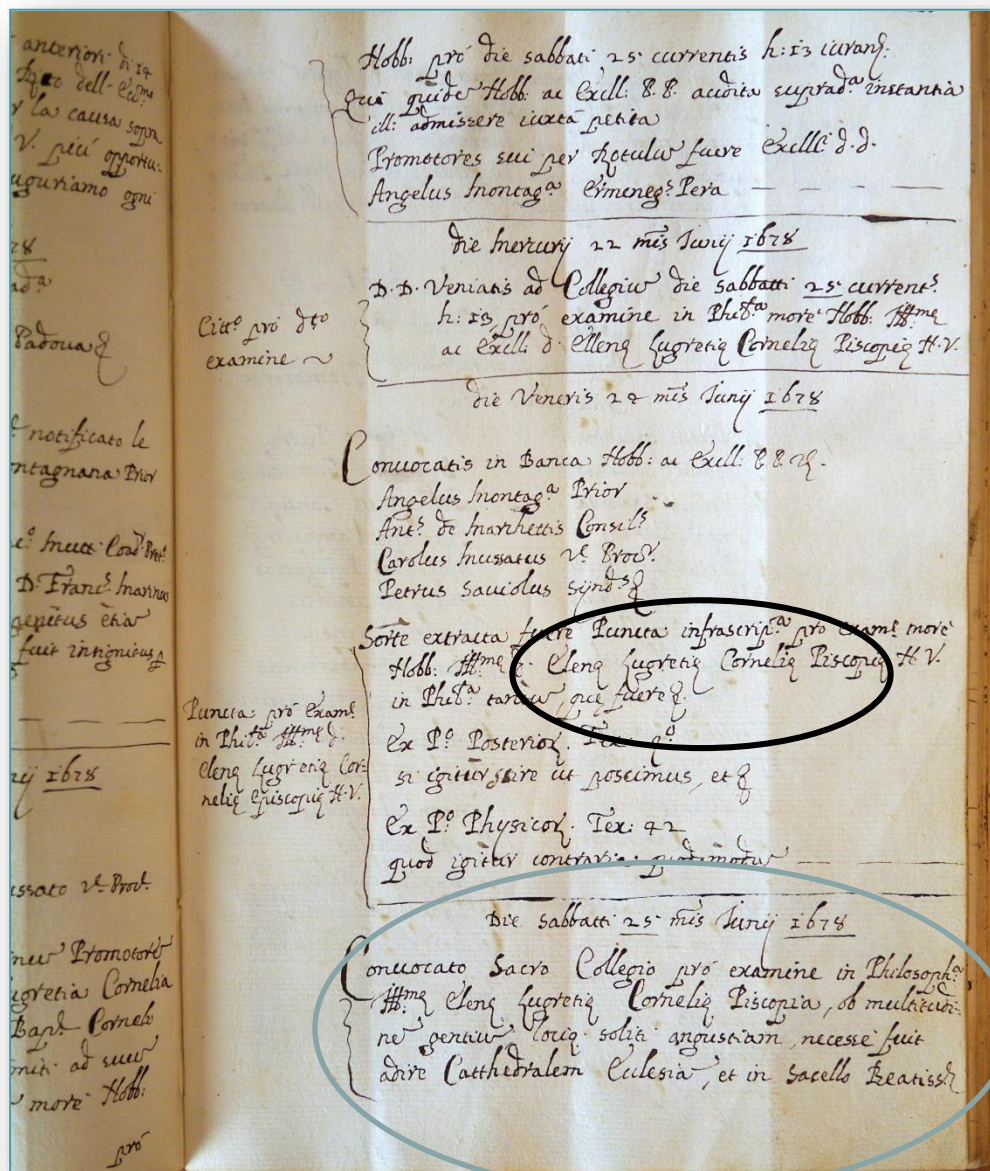 anteriori di 14
dell' Ecc.me
r la causa sopra
V. più opportu-
uguriamo ogni
78
ad.a
Padoua &
notificato le
ntagnana Prior
D. Franc.s Marinus
genitus etia
fuit insignitus
ij 1678
ussato V. Proc.r
neu Promotore
ugretia Cornelia
Bapt. Cornel
miti ad suu
more Hobb:
pró
Hobb: pró die sabbati 25 currentis h: 13 iurand.
Qui quide Hobb: ac Excll: 88. audita suprad.a instantia
ill: admissere iuxta petita
Promotores sui per Rotulu fuere Excll: d. d.
Angelus Montag.a Ermeneg.s Pera — — — —
die Mercurij 22 mēs Junij 1678
D. D. Veniatis ad Collegiu die sabbatti 25 current.s
h: 13 pró examine in Phil.a more Hobb: Ill.me
ac Excll: d. Ellenę Lugretię Cornelię Piscopię H. V.
Citt.o pró dto
examine ~
die Veneris 24 mēs Junij 1678
Conuocatis in Banca Hobb: ac Excll: 88.
Angelus Montag.a Prior
Ant.s de Marchettis Consil.s
Carolus Mussatus V. Proc.r
Petrus Sauiolus Synd.s &
Sorte extracta fuere Puncta infrascrip.ta pró exam.e more
Hobb: Ill.me d. Elenę Lugretię Cornelię Piscopię H. V.
in Phil.a tantu, quę fuere &
Puncta pró Exam.e
in Phil.a Ill.me d.
Elenę Lugretię Cor-
nelię Episcopię H. V.
Ex P.o Posterior. Tex: 2.o
si igitur scire ut poscimus, et &
Ex P.o Physicor. Tex: 42
quod igitur contraria quodmodu —
Die Sabbatti 25 mēs Junij 1678
Conuocato Sacro Collegio pró examine in Philosoph.a
Ill.me Elenę Lugretię Cornelię Piscopia, ob multitudi-
ne gentiu locię soliti angustiam, necesse fuit
adire Catthedralem Ecclesia, et in Sacello Beatiss.